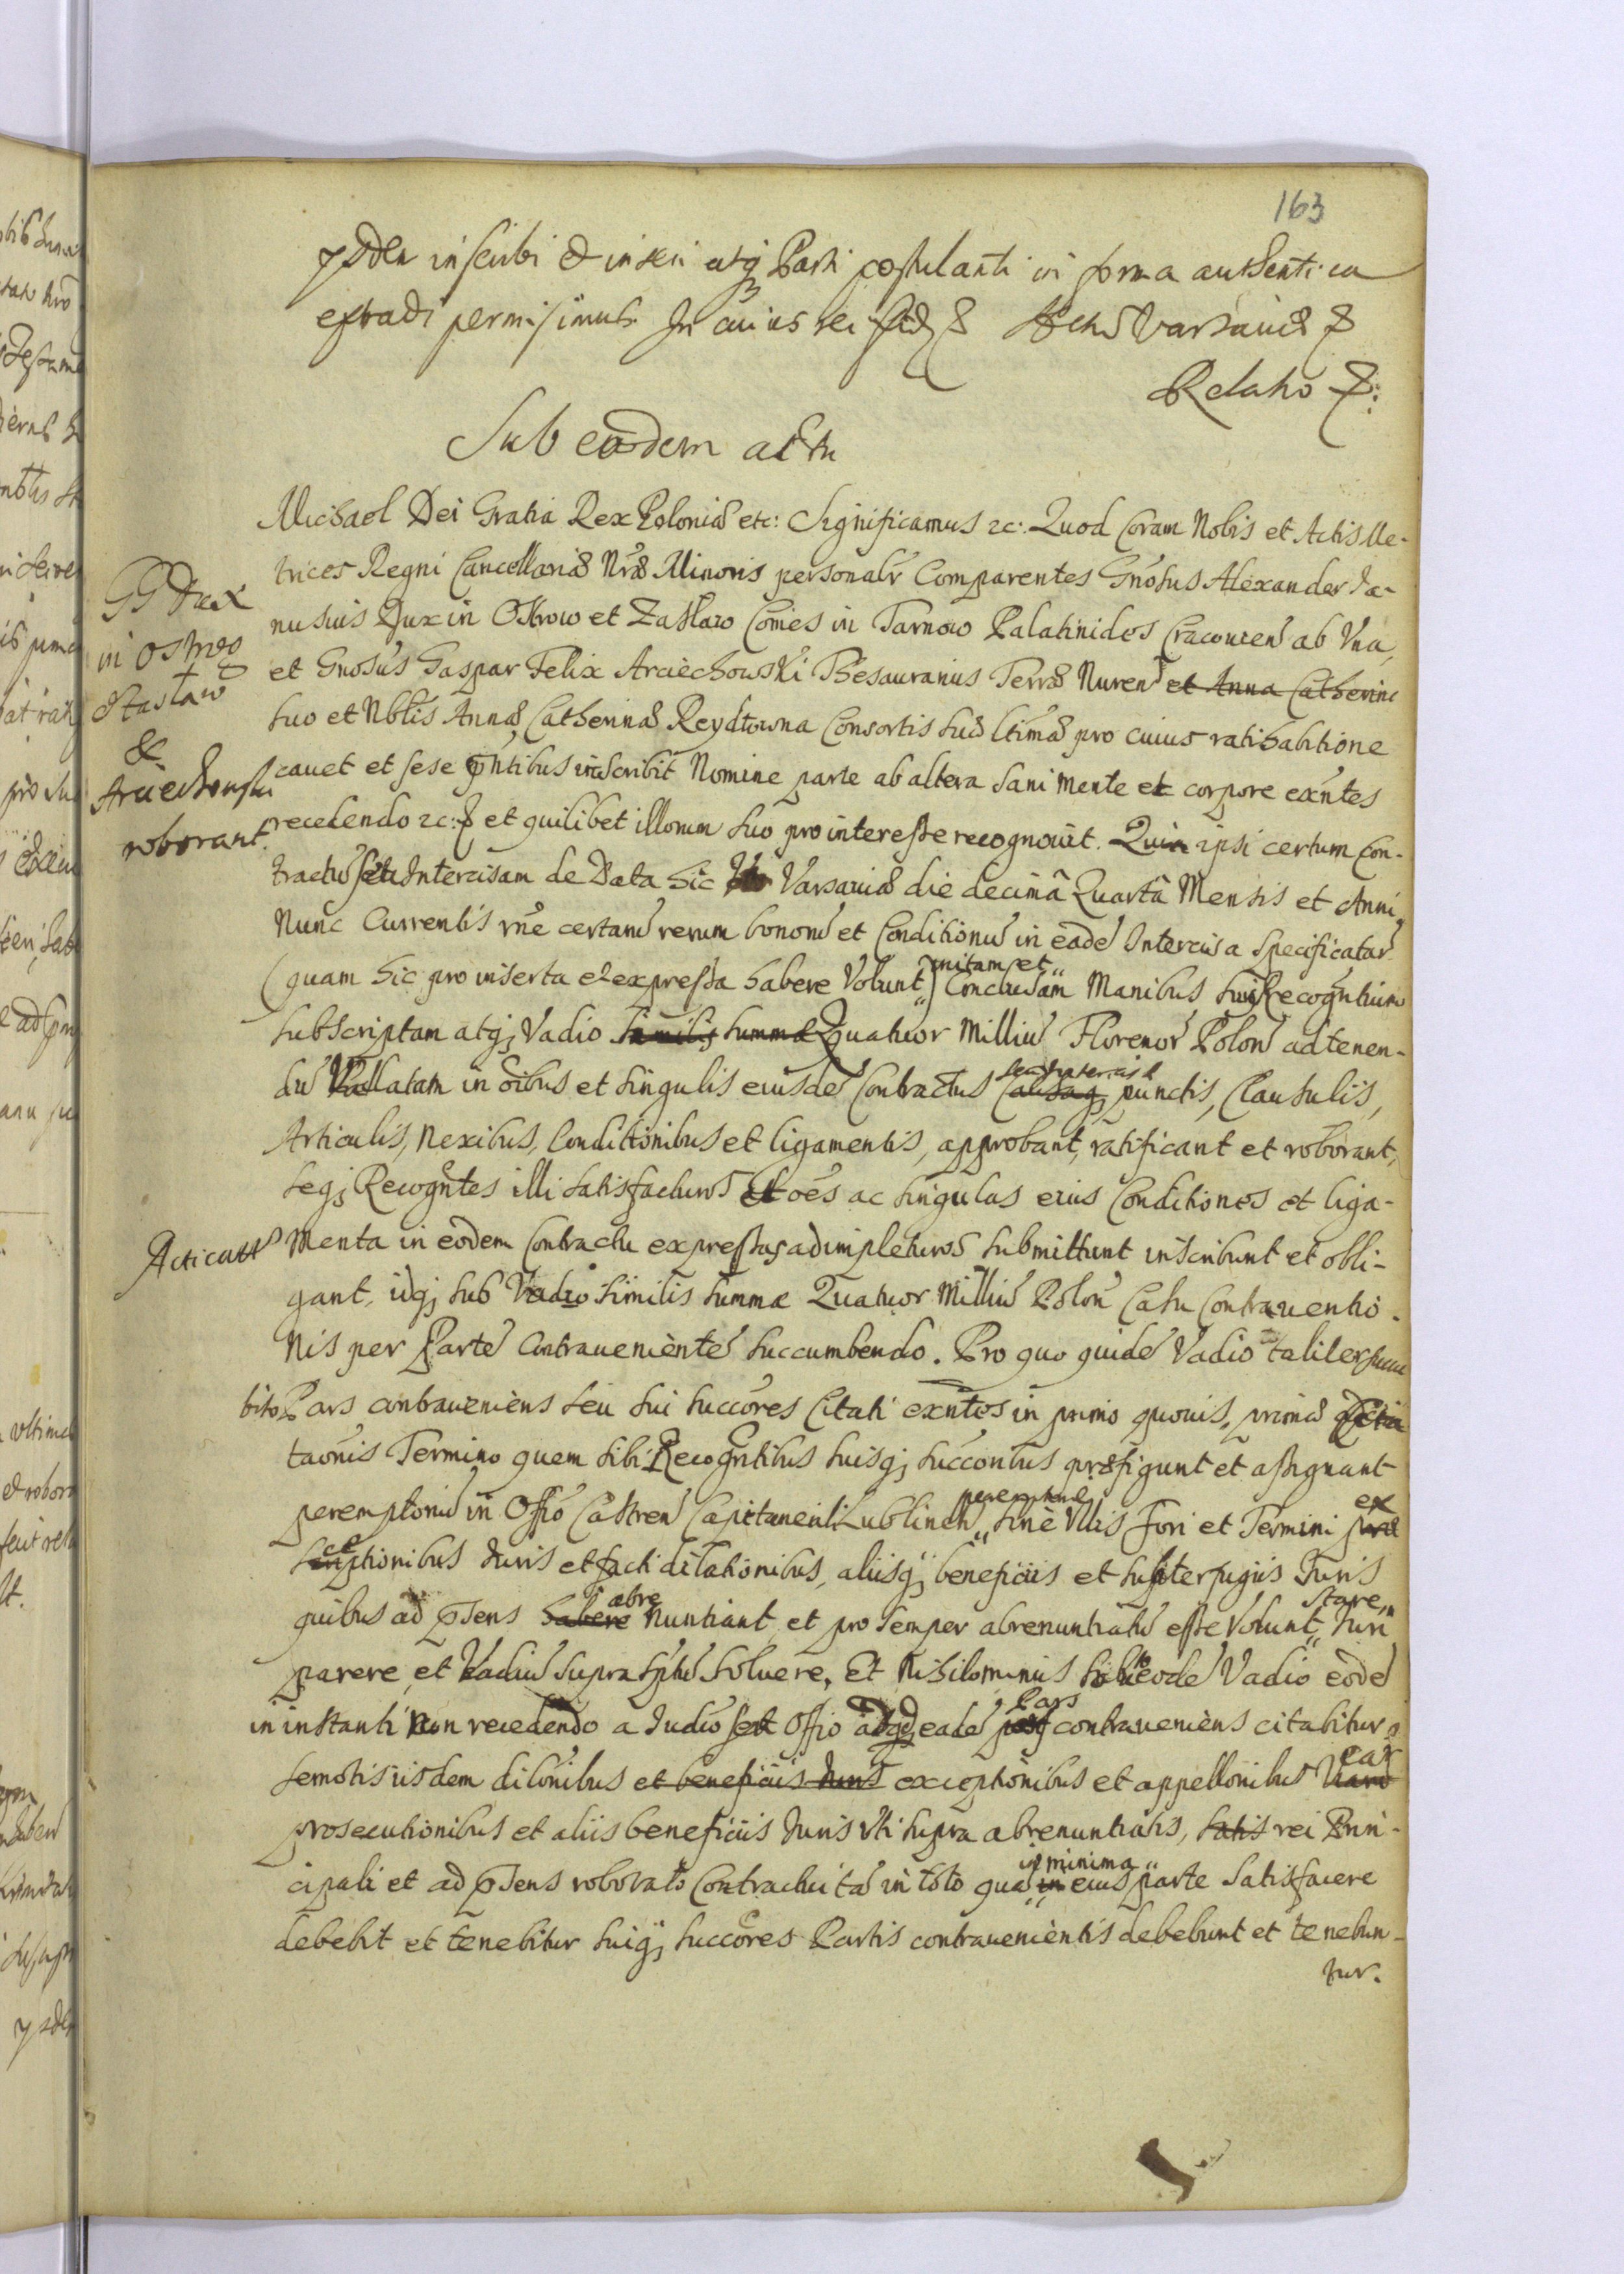 163
inscribi & inseri atq Parti postulanti in forma authentica
extradi permisimus. In cuius rei fid & Actum Varsaviæ &
Relatio &:
Sub eodem actu
Michael Dei Gratia Rex Poloniæ etc: Significamus 2c: Quod Coram Nobis et Actis Me-
trices Regni Cancellariæ Nræ Minoris personalr Comparentes Gnosus Alexander Ja-
nusius Dux in Ostrow et Zaslaw Comes in Tarnow Palatinides Cracouien ab Vna,
et Gnosus Gaspar Felix Arciechowski Thesaurarius Terræ Nuren et Anna Catherine
suo et Nblis Annæ Catherinæ Reydtowna Consortis suæ ltimæ pro cuius ratihabitione
cauet et sese pntibus inscribit Nomine parte ab altera sani mente et corpore exntes
recedendo 2c: & et quilibet illorum suo pro interesse recognouit. Quia ipsi certum Con-
tractu seu Intercisam de Data hic Varsauiæ die decimâ Quartâ Mensis et Anni
Nunc Currentis rne certaru rerum bonoru et Conditionu in eade Intercisa Specificatar
(quam hic pro inserta et expressa habere Volunt) initam et Conclusam Manibus suis Recogntium
subscriptam atq Vadio similis summæ Quatuor Milliu Florenor Polon ad tenen-
du Vallatam in oibus et singulis eiusde Contractus punctis, Clausulis,
Articulis, Nexibus, Conditionibus et ligamentis, approbant, ratificant et roborant,
seq Recogntes illi satisfacturos Et oes ac singulas eius Conditiones et liga-
menta in eodem Contractu expressas adimpleturos submittunt inscribunt et obli-
gant, idq sub Vadio similis summæ Quatuor Milliu Polon Casu Contrauentio-
nis per Parte Contraueniente succumbendo. Pro quo quide Vadio taliter succu
bito Pars contraueniens seu sui succores Citati exntes in primo quouis, primæ Cita
taonis Termino quem sibi Recogntibus suisq succoribus præfigunt et assignant
peremptoriu in Offio Castren Capitaneali Lublinen peremptorie sine Vllis fori et Termini ex
ceptionibus Juris et facti dilationibus, aliisq beneficiis et subterfugiis Juris
quibus ad præsens habere abre nuntiant et pro semper abrenuntiatu esse Volunt, stare, Juri
parere, et Vadiu supra sptu soluere, Et Nihilominus sub eode Vadio eode
in instanti non recedendo a Judio seu Offio adqd eade Pars contraueniens citabitur
semotis iisdem dilonibus et beneficiis Juris exceptionibus et appellonibus ear
prosecutionibus et aliis beneficiis Juris vti supra abrenuntiatis, satis rei Prin-
cipali et ad præsens roborato Contractui tã in toto quã in minima eius parte satisfacere
debebit et tenebitur suiq succores Partis contrauenientis debebunt et tenebun-
tur.
GG Dux
in Ostrog
& Zaslaw
&
Arciechowski
roborant.
Acticatt